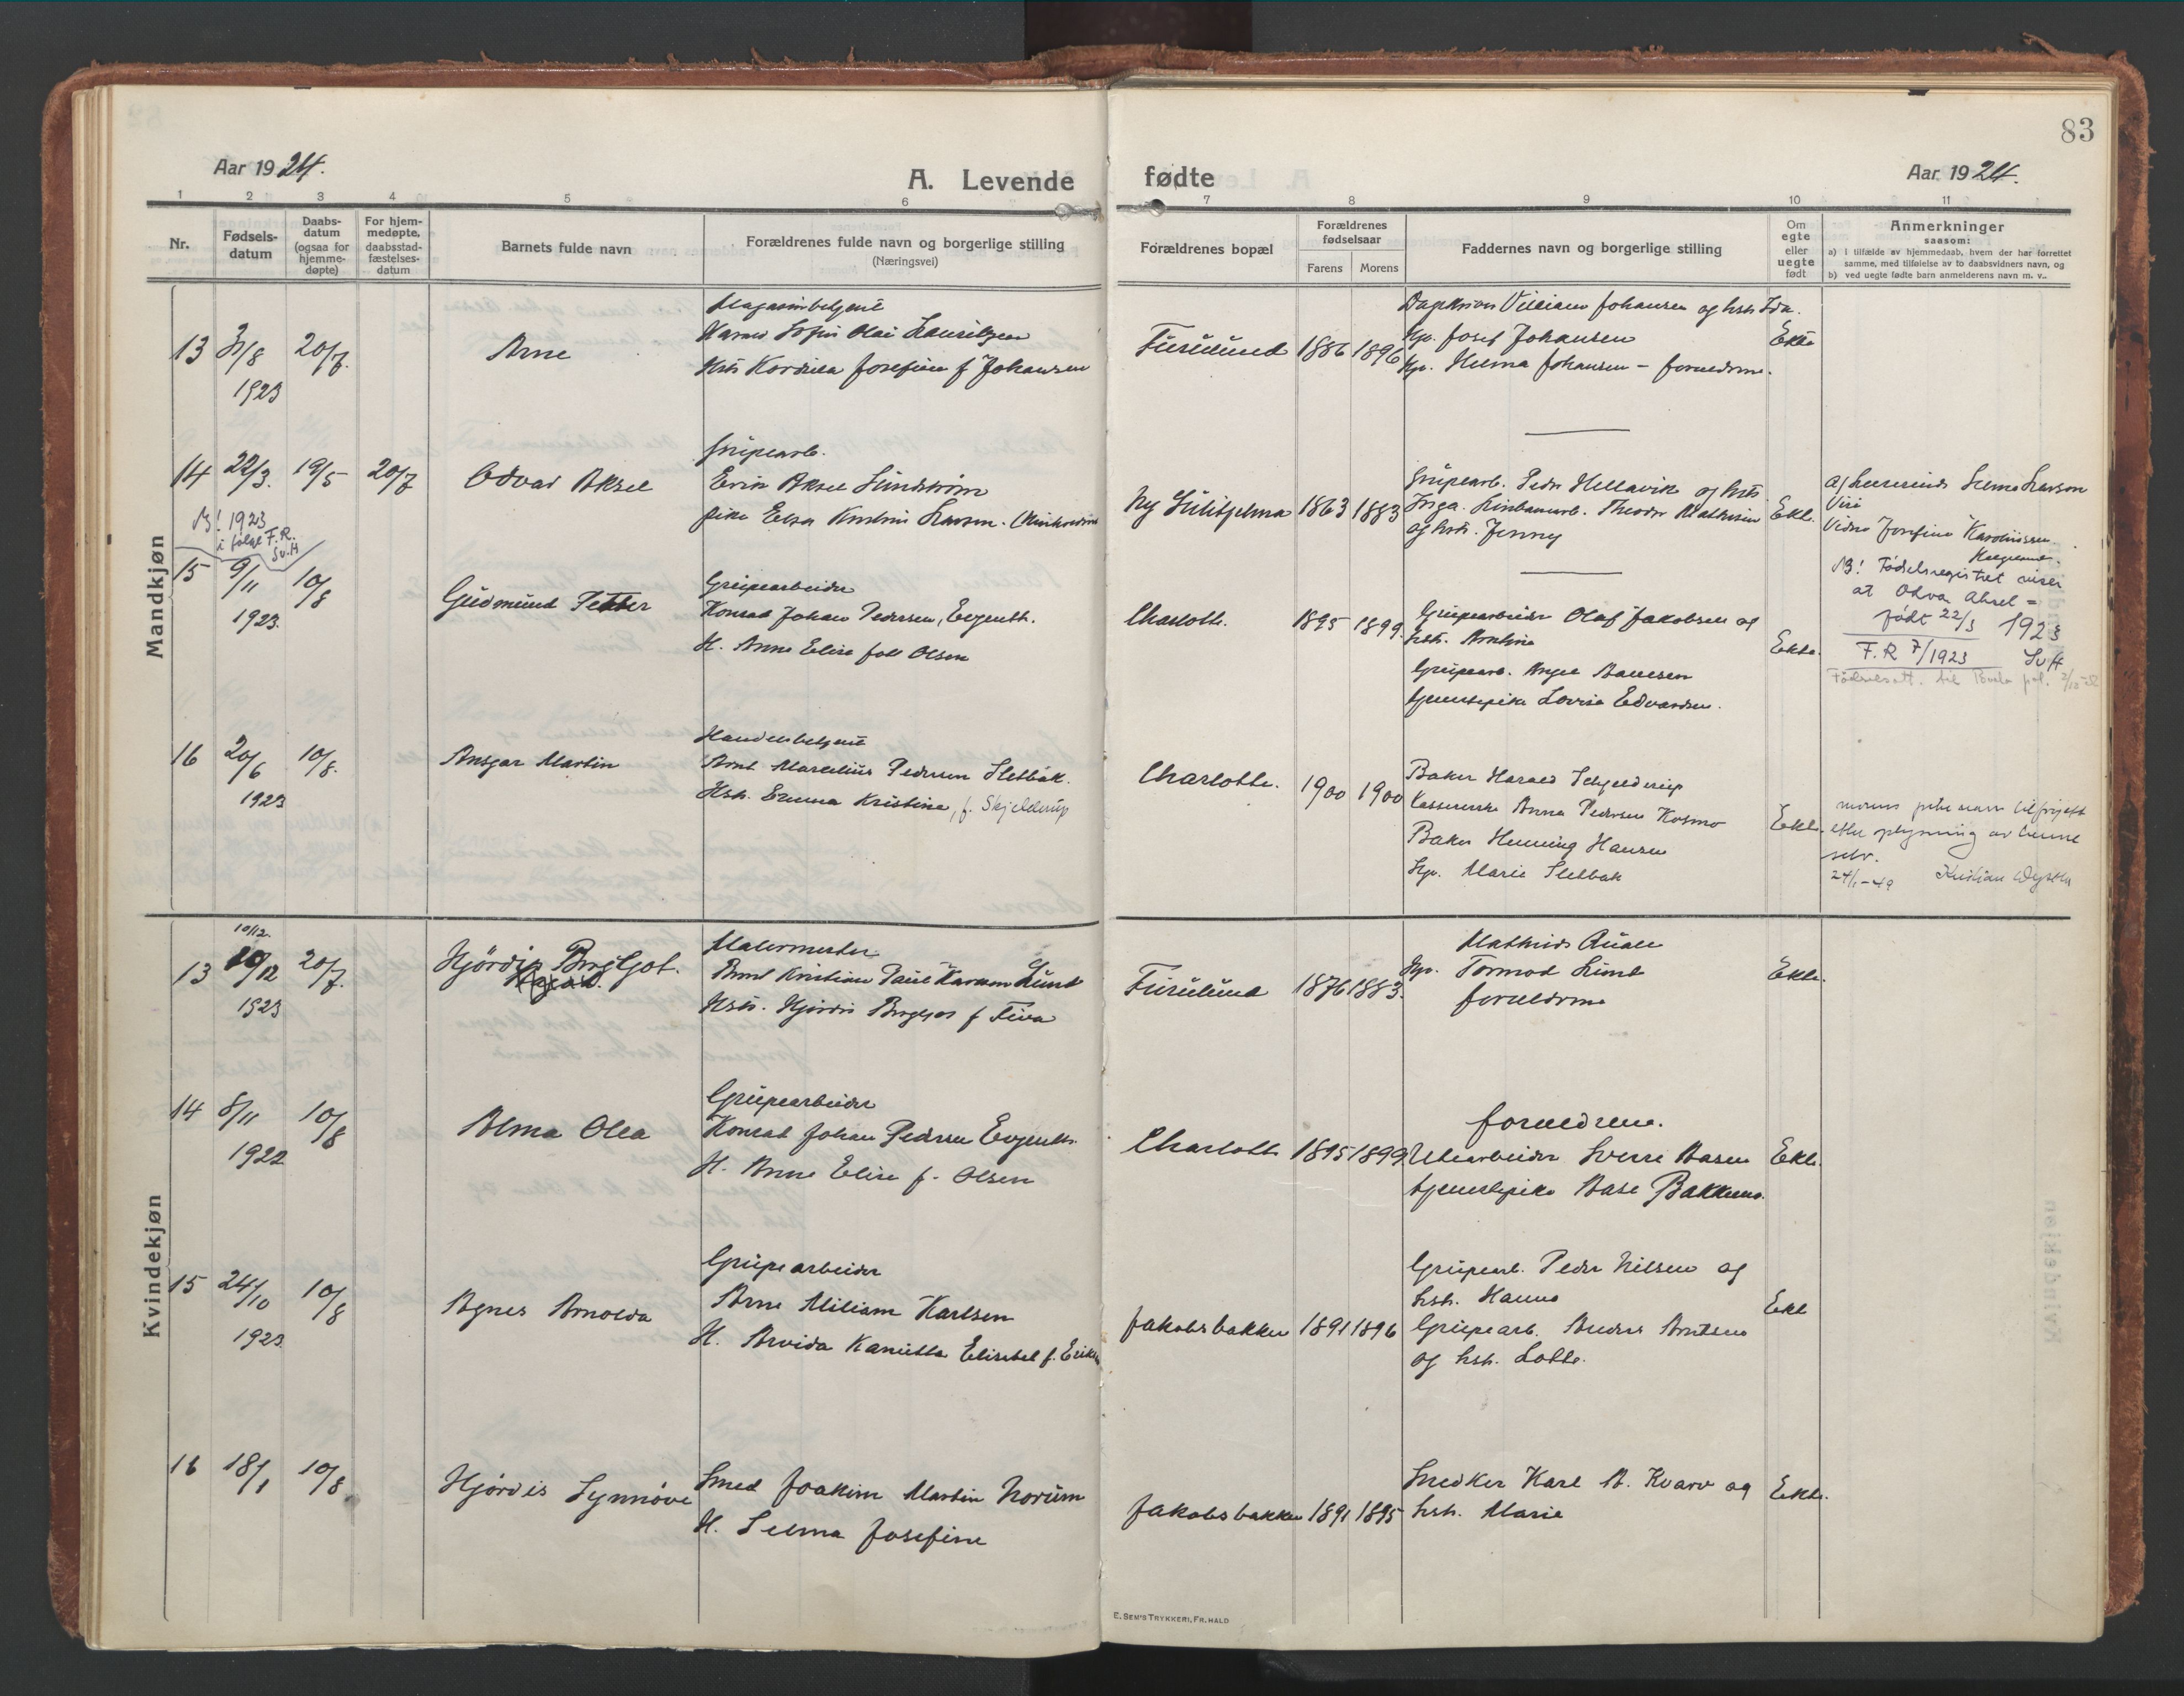 83
Aar 1924.
A. Levende
fødte
Aar 1924.
1 2 3 4 5 6 7 8 9 10 11
Nr.
Fødsels-
datum
Daabs-
datum
(ogsaa for
hjemme-
døpte)
For hjem-
medøpte,
daabsstad-
fæstelses-
datum
Barnets fulde navn
Forældrenes fulde navn og borgerlige stilling
(Næringsvei)
Forældrenes bopæl
Forældrenes
fødselsaar
Farens Morens
Faddernes navn og borgerlige stilling
Om
egte
eller
uegte
født
Anmerkninger
saasom:
a) I tilfælde av hjemmedaab, hvem der har forrettet
samme, med tilføielse av to daabsvidners navn, og
b) ved uegte fødte barn anmelderens navn m. v..
Mandkjøn
13 31/8 20/7.
1923
Arne
Magasinbetjent
Harald Sofus Olai Lauritzen
Hstr Kordula Josefine f Johansen
Furulund 1886 1896
William Johansen og hstr Ida.
Hp. Josef Johansen
Hp. Helma Johansen - foreldrene.
Ekte
14 22/3. 19/5 20/7
B! 1923
i følge F.R.
Sv.H
Odvar Aksel
Grupearb.
Erik Aksel Sundström
pike Elsa Kristine Larsen.
Ny Sulitjelma 1863 1883
Grupearb. Peder Hellavik og hstr.
Inga. Theodor Mathisen
og hstr. Jenny
Ekte.
Selma Larson
Vidne Josefine Karolinssen.
B! Fødselsregistret viser
at Odvar Aksel =
født 22/3 1923
F.R 7/1923 SvH
15 9/11 10/8
1923.
Gudmund Petter
Grupearbeider
Konrad Johan Pedersen, Evjenth.
H. Anne Elise født Olsen
Charlotte. 1895 1899.
Grupearbeider Olaf Jakobsen og
hstr. Arntine
Grupearb. Angel
tjenestepike Lovise Edvardsen.
Ekte.
16 20/6 10/8.
1923
Ansgar Martin
Handelsbetjent
Arnt Marelius Pedersen Sletbak.
Hstr. Emma Kristine, f. Skjelderup
Charlotte. 1900 1900
Baker Harald Schjelderup
Kassererske Anna Pedersen Kosmo
Baker Henning Hansen
Hp. Marie Sletbak
Ekte.
morens pikenavn tilføiet
etter oplysning av henne
selv.
24/1-49
Kvindekjøn
10/12.
13 10/12 20/7.
1923
Hjördis Bergljot.
Malermester
Arnt Kristian Paul Karsten Lund
Hstr. Hjördis Bergljot f
Furulund 1876 1883.
Mathias
Hp. Tormod Lund
foreldrene
Ekte.
14 8/11 10/8
1922
Alma Olea
Grupearbeider
Konrad Johan Pedersen Evjenth.
H. Anne Elise f. Olsen
Charlotte 1895 1899
foreldrene.
Utearbeider Sverre Basen
tjenestepike Aase Bakkemo.
Ekte.
15 24/10 10/8
1923.
Agnes Arnolda
Grupearbeider
Arne Miliam Karlsen
H. Arvida Kamilla Elisebet f. Eriksen
Jakobsbakken 1891 1896
Grupearb. Peder Nilsen og
hstr. Hanna
Grupearb. Anders Arntsen
og hstr. Lotte.
Ekte
16 18/1 10/8
Hjördis Synnöve
Smed Joakim Martin Norum
H. Selma Josefine
Jakobsbakken 1891 1895
Snedker Karl A. Kvarv og
hstr. Marie
Ekte.
E. SEM'S TRYKKERI, FR. HALD